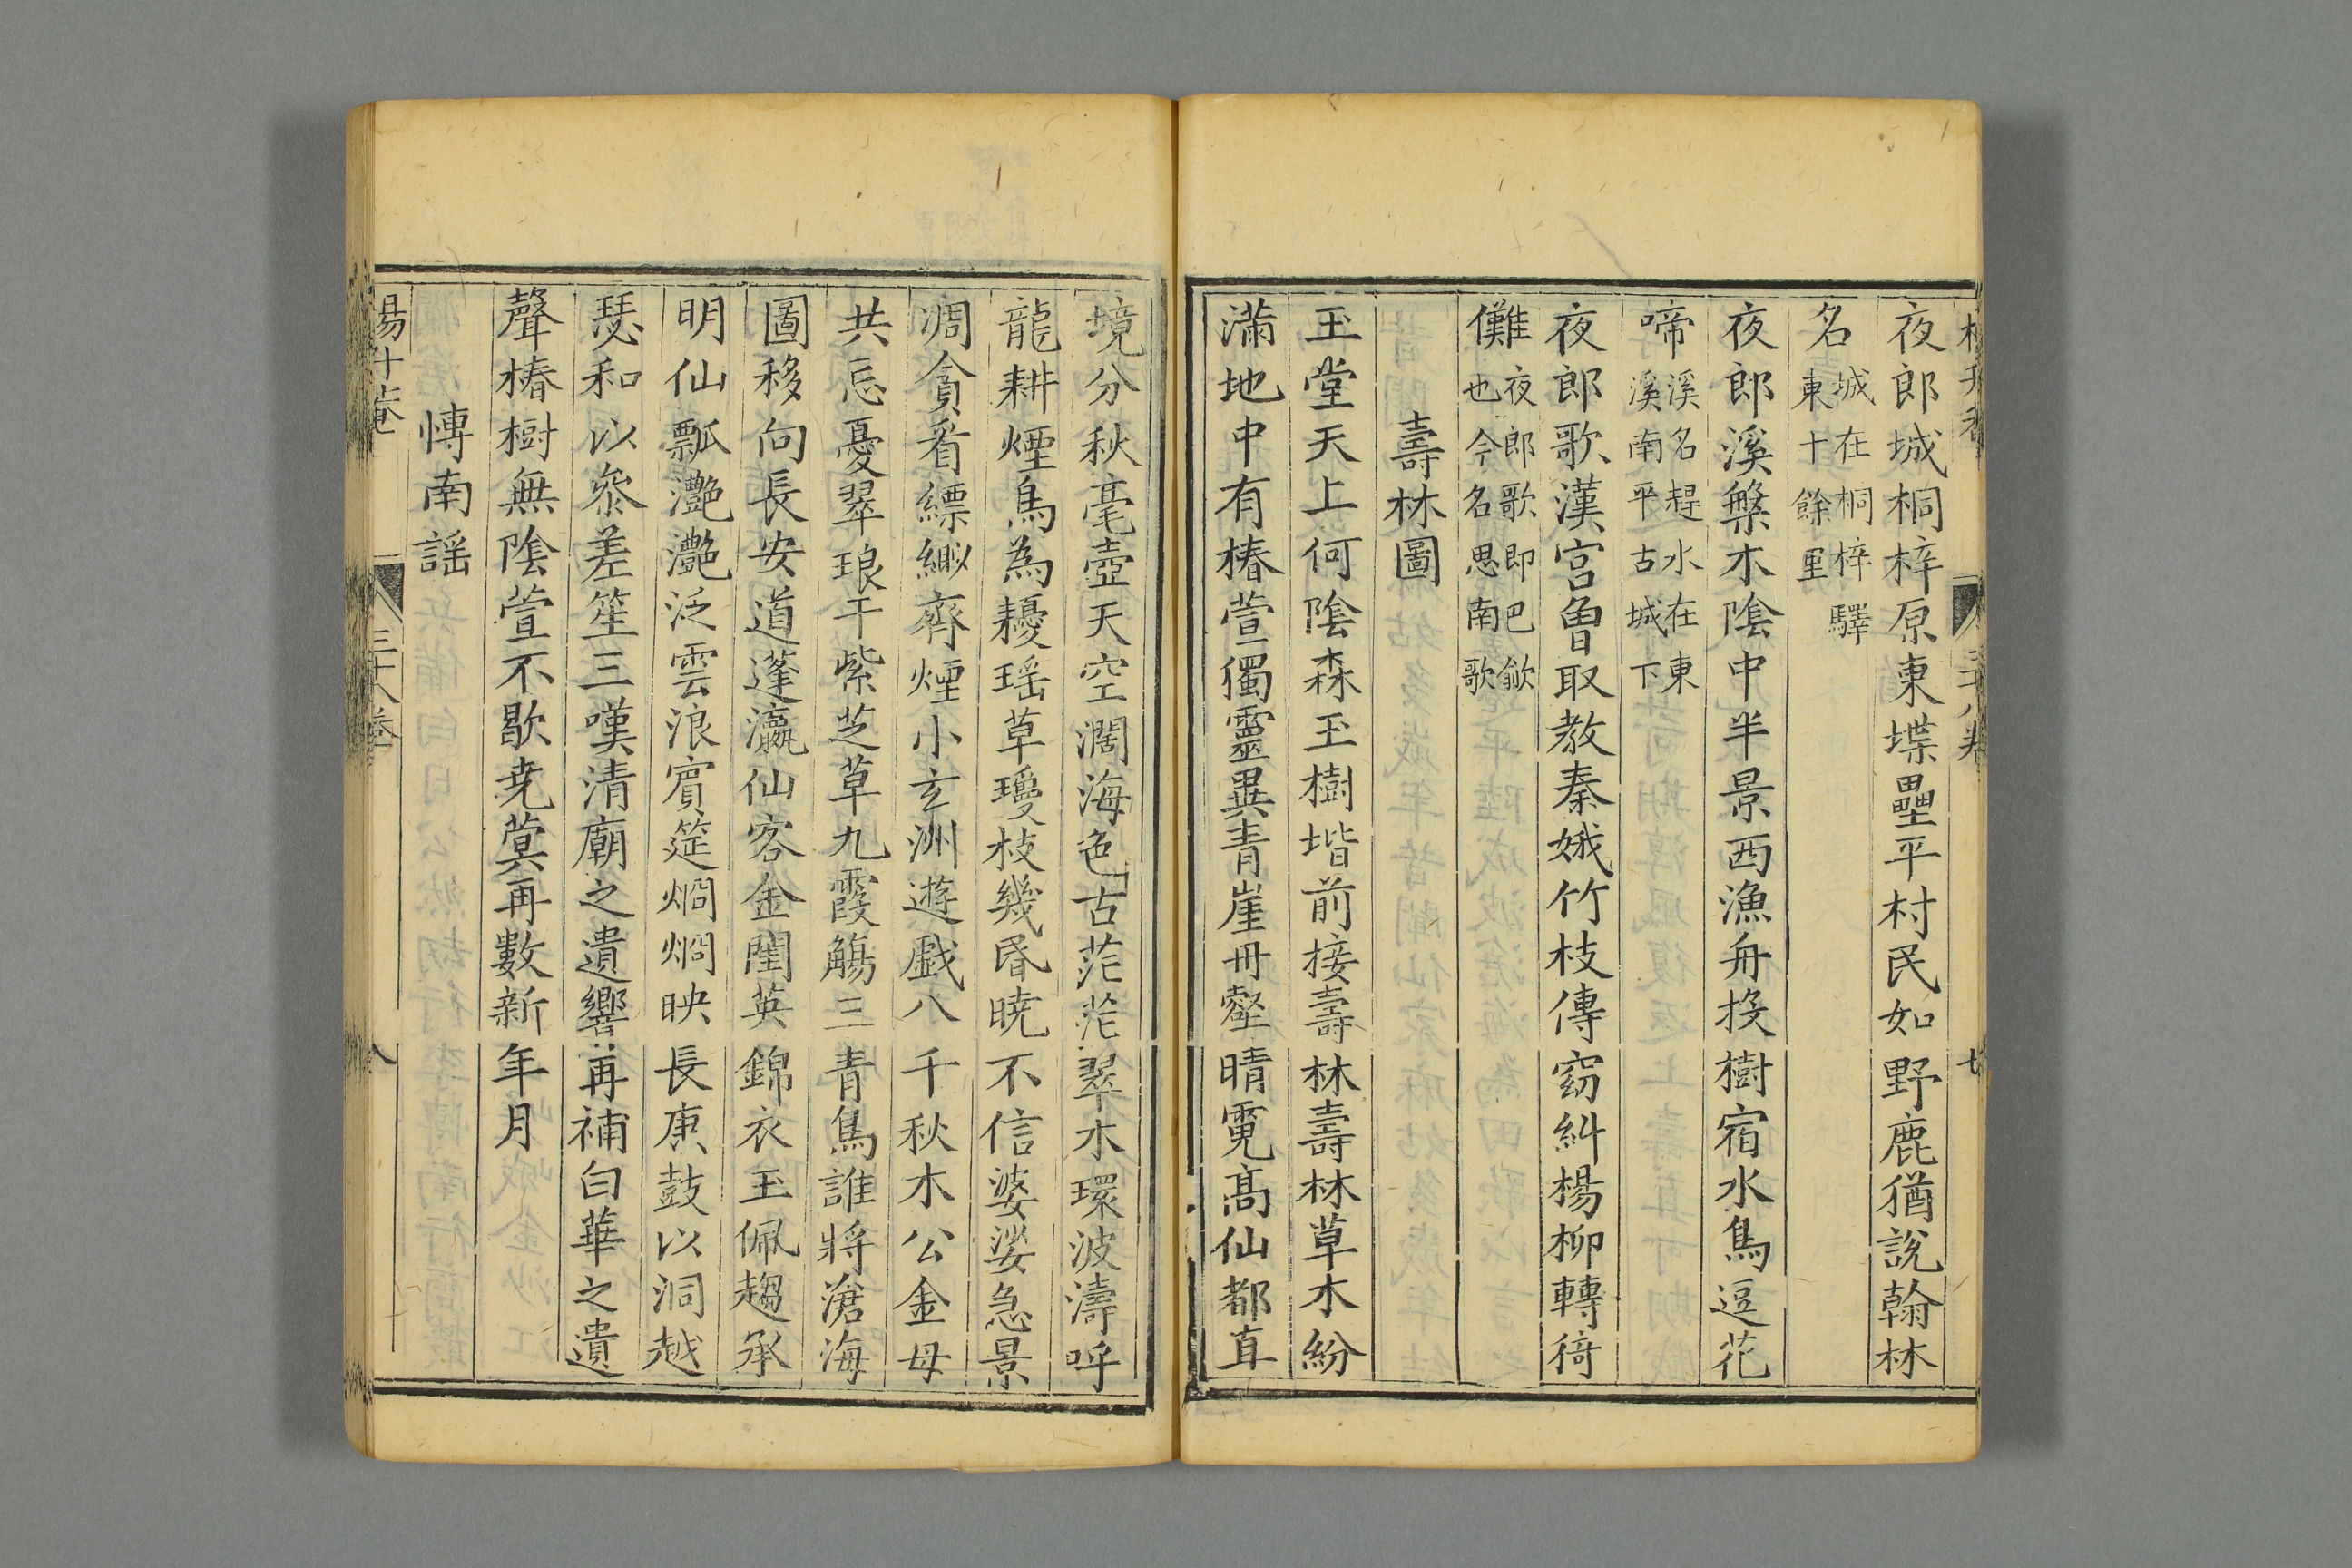 夜郎城桐梓原東堞壘平村民如野鹿猶說翰林
名城在桐梓驛東十餘里
夜郎溪槃木陰中半景西漁舟投樹宿水鳥逗花
啼溪名趕水在東溪南平古城下
夜郎歌漢宮魯取教秦娥竹枝傳窈糾楊柳轉猗
儺夜郎歌即巴歈也今名思南歌
壽林圖
玉堂天上何陰森玉樹堦前接壽林壽林草木紛
滿地中有椿萱獨靈異青崖冊壑晴霓高仙都直
境分秋毫壺天空濶海色古茫茫翠水環波濤呼
龍耕煙鳥為耰瑶草瓊枝幾昏曉不信婆娑急景
凋貪看縹緲齊煙小玄洲遊戲八千秋木公金母
共忘憂翠琅干紫芝草九霞觴三青鳥誰將滄海
圖移向長安道蓬瀛仙客金閨英錦衣玉佩趨承
明仙瓢灔灔泛雲浪賓筵烱烱映長庚鼓以洞越
瑟和以參差笙三嘆清廟之遺響再補白華之遺
聲椿樹無陰萱不歇尭蓂再數新年月
慱南謡
三十八卷
八